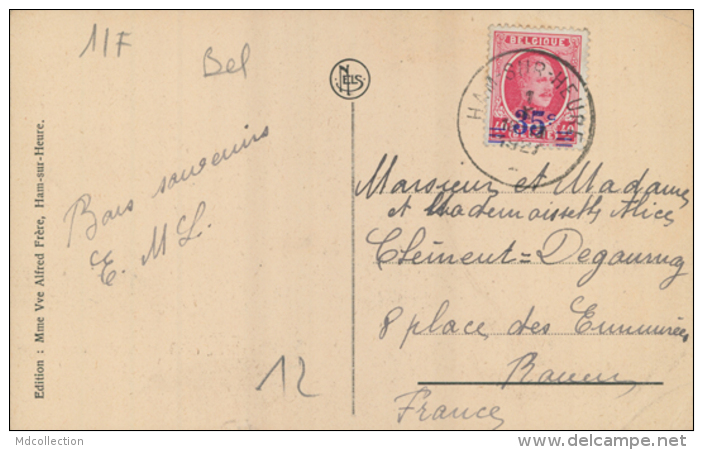 11F
Bel
NELS
BELGIQUE
HAM-SUR-HEURE
1
35c
1927
Edition : Mme Vve Alfred Frère, Ham-sur-Heure.
Bons souvenirs
E. M L.
12
Monsieur et Madame
et Mademoiselle Alice
Clément = Degournay
8 place des
Rouen
France
Mdcollection
delcampe.net